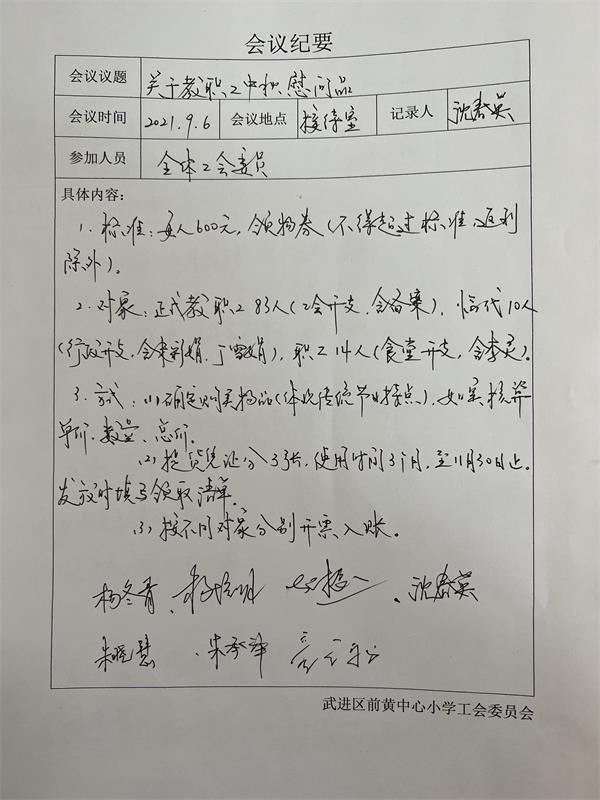 会议纪要
会议议题 关于教职工中秋慰问品
会议时间 2021.9.6 会议地点 接待室 记录人 沈春英
参加人员 全体工会委员
具体内容：
1. 标准：每人600元，领物券（不得超过标准，返利
除外）。
2. 对象：正式教职工83人（工会开支，含备案），临代10人
（行政开支，含来彩娟、丁雪娟），职工14人（食堂开支，含李灵）。
3. 方式：（1）确定购买物品（体现传统节日特点），如实核算
单价、数量、总价。
（2）提货凭证分3张，使用时间3个月，至11月30日止。
发放时填写领取清单。
（3）按不同对象分别开票入账。
杨冬青 沈春英
朱晓慧
武进区前黄中心小学工会委员会